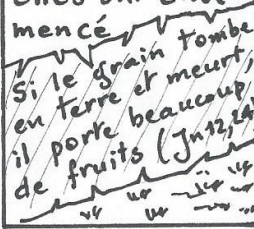 mencé
Si le grain tombe
en terre et meurt,
il porte beaucoup
de fruits (Jn12,24